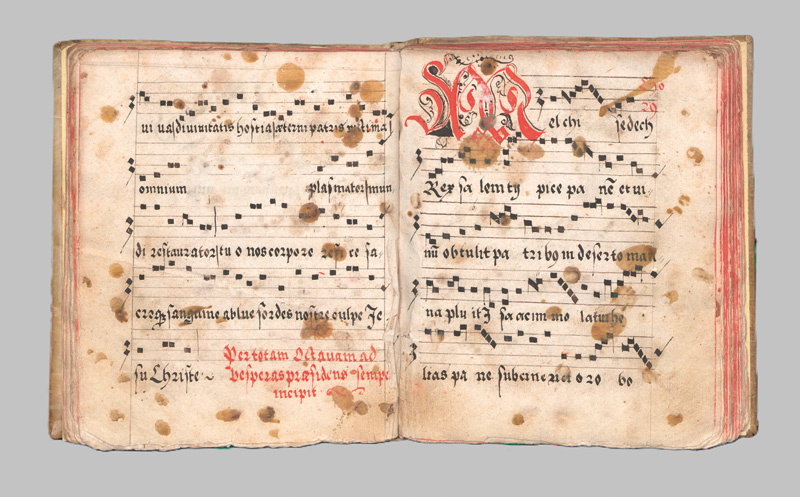 ui ua, diuinitatis hostia, æterni patris uictima,
omnium plasmator, mun
di restaurator, tu o nos corpore refice sa-
croq, sanguine ablue sordes nostre culpe Je
su Christe
Per totam Octauam ad
Vesperas præsidens semper
incipit
M elchi sedech
Rex sa lem ty pice pa nē et ui-
nū obtulit pa tribo in deserto man
na pluit
pa ne subcinericio